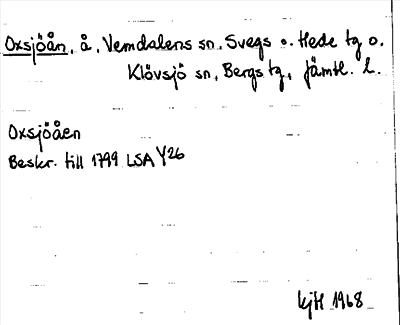 Oxsjöån, å, Vemdalens sn, Svegs o. Hede tg o.
Klövsjö sn, Bergs tg, Jämtl. l.
Oxsjöåen
Beskr. till 1799 LSA Y26
1968